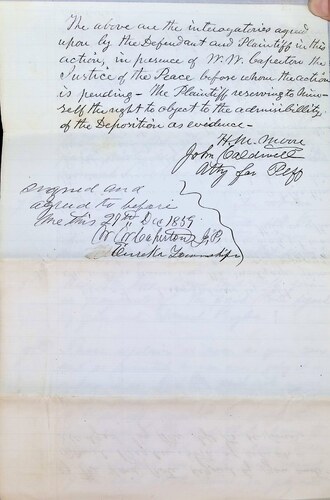 The above are the interogatories agreed
upon by the Defendant and Plaintiff in this
action, in presence of W. W. Caperton the
Justice of the Peace before whom the action
is pending - The Plaintiff reserving to him-
self the right to object to the admissibillity
of the Deposition as evidence -
H. M. Moore
John Caldwell
Atty for Plff
Signed and
agreed to before
me this 29th Dec 1859
W W Caperton J. P.
Eureka Township